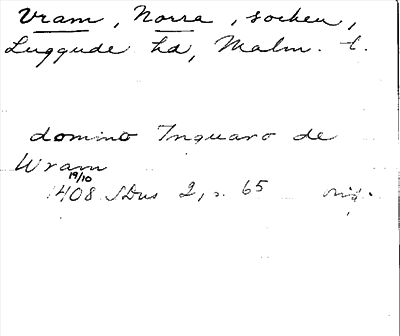 Vram, Norra, socken,
Luggude hd, Malm. l.
domino Inguaro de
Wram
19/10
1408 SDns 2, s. 65 orig.